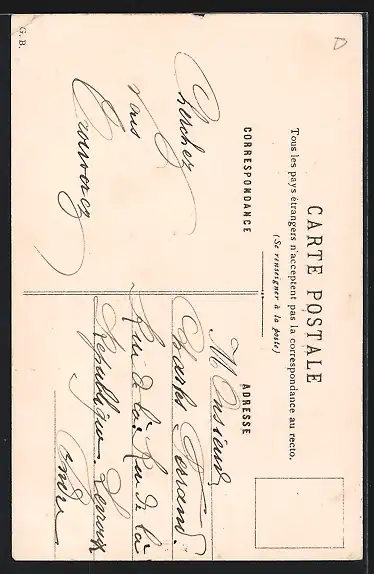 G. B.
D
CARTE POSTALE
Tous les pays étrangers n'acceptent pas la correspondance au recto.
(Se renseigner à la poste)
CORRESPONDANCE
ADRESSE
Cherchez
vous
Monsieur
Charles
Rue de la Rue de la
République. Levroux
Indre